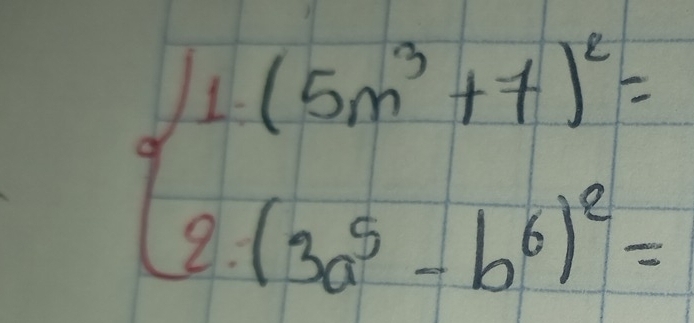 1. (5m³ + 7)² =
2. (3a⁵ - b⁶)² =